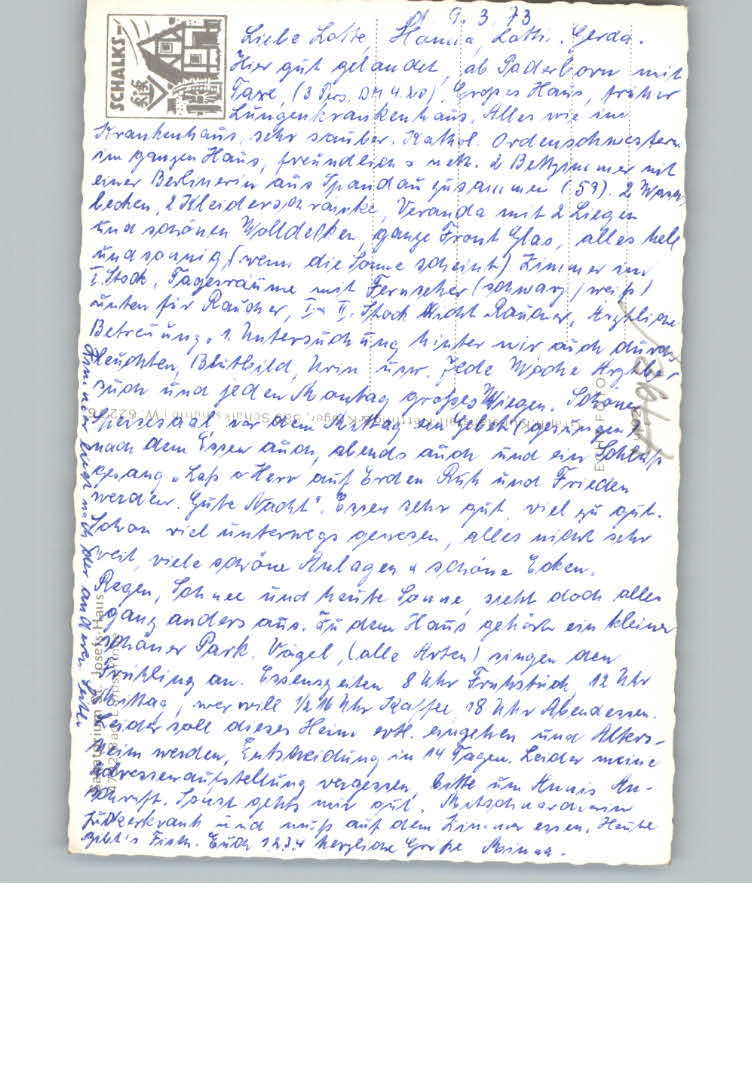 d. 9.3.73
Liebe Lotte, Hanna, Lotti. Gerda.
Hier gut gelandet, ab Paderborn mit
Taxe, (3 Pers. DM 4.20). Großes Haus, früher
Lungenkrankenhaus. Alles wie im
Krankenhaus, sehr sauber. Kathol. Ordenschwestern
im ganzen Haus, freundlich u nett. 2 Bettzimmer mit
einer Berlinerin aus Spandau zusammen (59). 2 Wasch
becken, 2 Kleiderschränke, Veranda mit 2 Liegen
und schönen Wolldecken, ganze Front Glas, alles hell
und sonnig, (wenn die Sonne scheint) Zimmer im
I. Stock, Tagesräume mit Fernseher (schwarz/weiß)
unten für Raucher, I u II. Stock Nicht Raucher, Ärztliche
Betreuung. 1. Untersuchung hinter mir auch durch
leuchten, Blutbild, Urin usw. Jede Woche Arzt
such und jeden Montag großes Wiegen. Schöner
Speisesaal vor dem Mittag ein gebet (gesungen)
nach dem Essen auch, abends auch und ein Schluß
gesang „Laß o Herr auf Erden Ruh und Frieden
werden. Gute Nacht". Essen sehr gut, viel zu gut.
Schon viel unterwegs gewesen, alles nicht sehr
weit, viele schöne Anlagen u schöne Ecken.
Regen, Schnee und heute Sonne, sieht doch alles
ganz anders aus. Zu dem Haus gehört ein kleiner
schöner Park. Vögel, (alle Arten) singen den
Frühling an. Essenszeiten 8 Uhr Frühstück, 12 Uhr
Mittag, wer will 1/2 16 Uhr Kaffee, 18 Uhr Abendessen.
Leider soll dieses Heim evtl. eingehen und Alters-
heim werden, Entscheidung in 14 Tagen. Leider meine
Adressenaufstellung vergessen, bitte um Annis An-
schrift. Sonst gehts mir gut. Mitschwester
zuckerkrank und muß auf dem Zimmer essen. Heute
gibt's Fisch. Euch 1 2 3 4 herzliche Grüße
auf der anderen Seite
SCHALKS-
Sanatorium St. Josefs-Haus